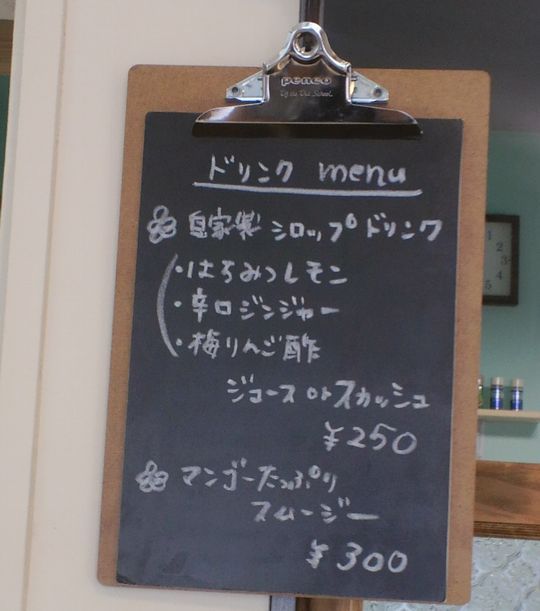 penco
ドリンク menu
自家製 シロップドリンク
・はちみつレモン
・辛口ジンジャー
・梅りんご酢
ジュース or スカッシュ
¥250
マンゴーたっぷり
スムージー
¥300
1
2
3
4
5